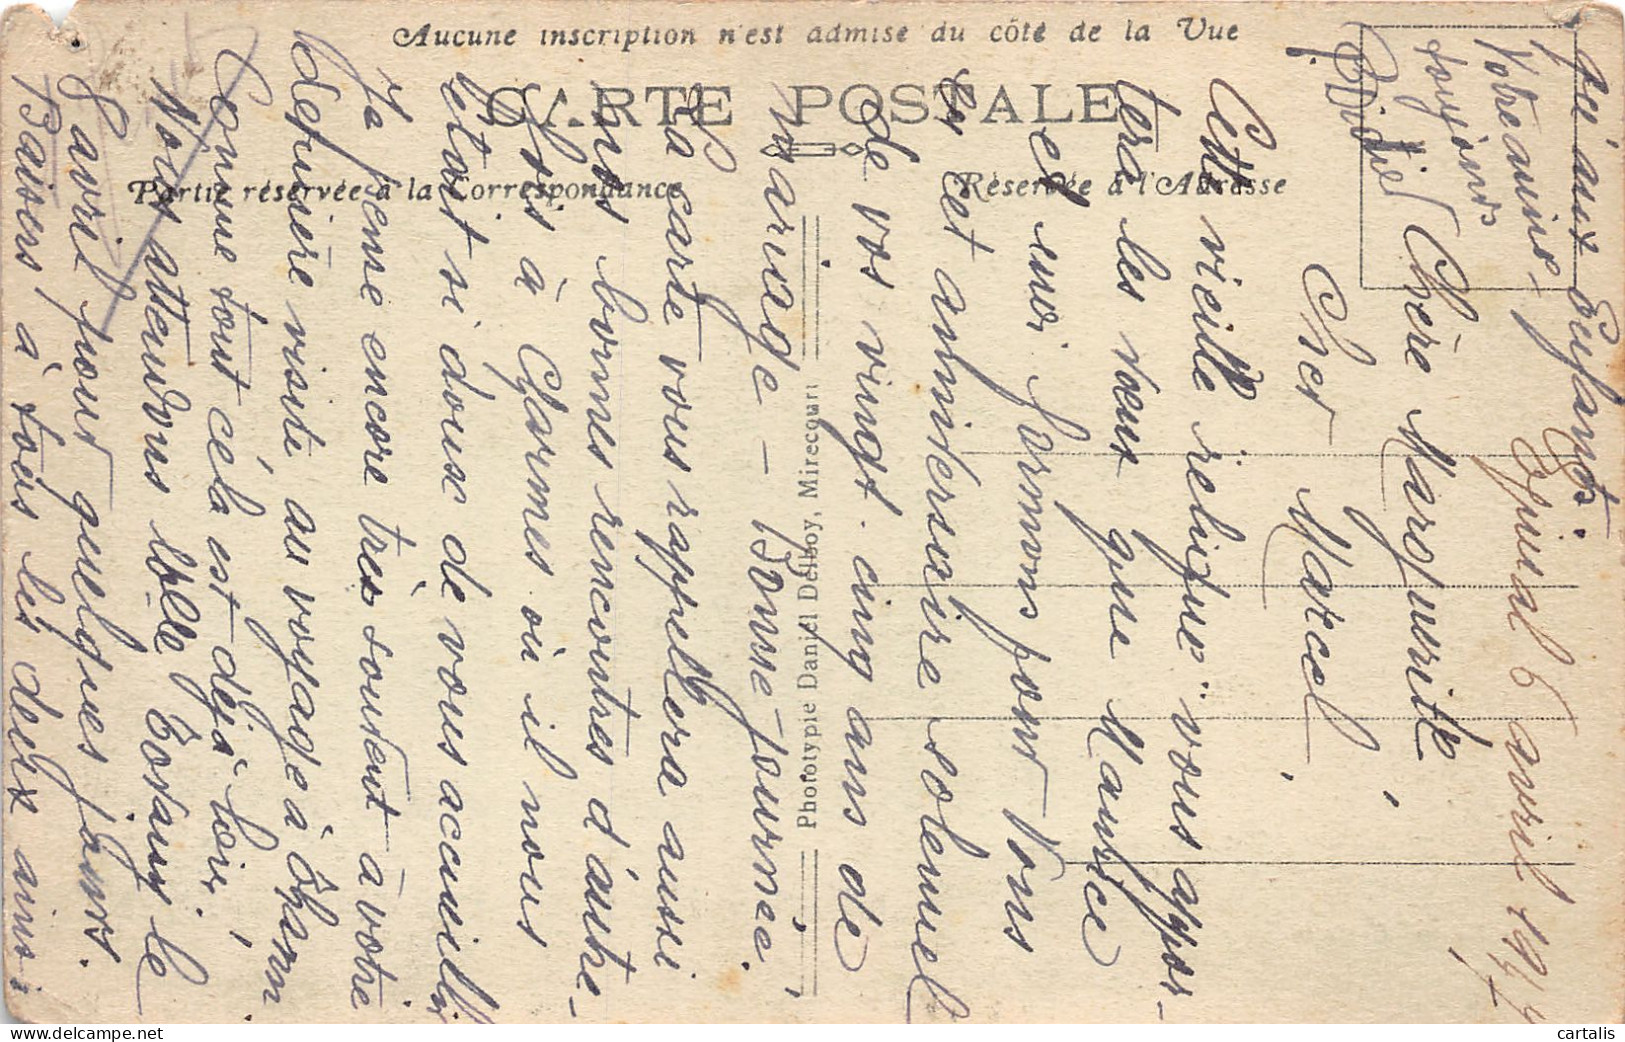 Aucune inscription n'est admise du côté de la Vue
CARTE POSTALE
Partie réservée à la Correspondance
Réservée à l'Adresse
Photoypie Daniel Delboy, Mirecourt
Epinal 6 avril 1944
Chère Marguerite,
Cher Marcel,
Cette vieille "relique" vous appor-
tera les vœux que Maurice
et moi formons pour vous
en cet anniversaire solennel
de vos vingt-cinq ans de
mariage - Bonne journée.
La carte vous rappellera aussi
nos bonnes rencontres d'autre-
fois à Charmes où il nous
était si doux de vous accueillir
Je pense encore très souvent à votre
dernière visite au voyage à
Comme tout céla est déjà loin,
Nous attendons le
9 avril pour quelques jours.
Baisers, à tous les deux ainsi
qu'aux Enfants.
Votre amie
toujours